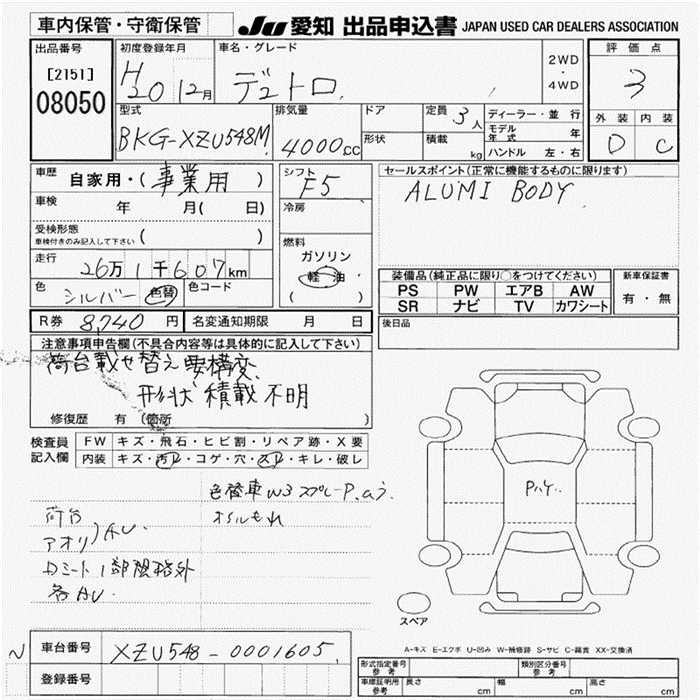 車内保管・守衛保管
JU 愛知 出品申込書 JAPAN USED CAR DEALERS ASSOCIATION
出品番号
[2151]
08050
初度登録年月
H20 12月
車名・グレード
デュトロ
2WD
・
4WD
評価点
3
外装 内装
D C
型式
BKG-XZU548M
排気量
4000cc
ドア
形状
定員 3人
積載 kg
ディーラー・並行
モデル年式 年
ハンドル 左・右
車歴 自家用・(事業用)
車検 年 月( 日)
受検形態
車検付きのみ記入して下さい ( )
走行 26万1千607km
色 シルバー 色替 色コード
シフト
F5
冷房
燃料
ガソリン
軽油
( )
セールスポイント(正常に機能するものに限ります)
ALUMI BODY
装備品(純正品に限り○をつけてください)
PS PW エアB AW
SR ナビ TV カワシート
新車保証書
有・無
後日品
R券 8,740円 名変通知期限 月 日
注意事項申告欄(不具合内容等は具体的に記入して下さい)
荷台載せ替え要構変
形状 積載 不明
修復歴 有 (箇所 )
検査員記入欄
FW キズ・飛石・ヒビ割・リペア跡・X要
内装 キズ・汚レ・コゲ・穴・スレ・キレ・破レ
色替車W3 スプレーP.
オイルもれ
荷台
アオリ AU.
1部規格外
各AU.
Pハゲ
スペア
A-キズ E-エクボ U-凹み W-補修跡 S-サビ C-腐食 XX-交換済
N 車台番号 XZU548-0001605
登録番号
形式指定番号 参考
類別区分番号 参考
車庫証明用 参考 長さ cm 幅 cm 高さ cm